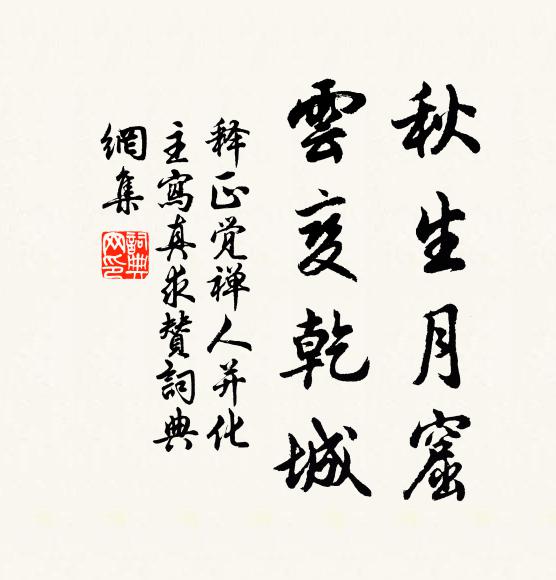 秋生月窟
雲变乾城
释正觉禅人并化
主寫真求賛詞典
網集
詞典网印